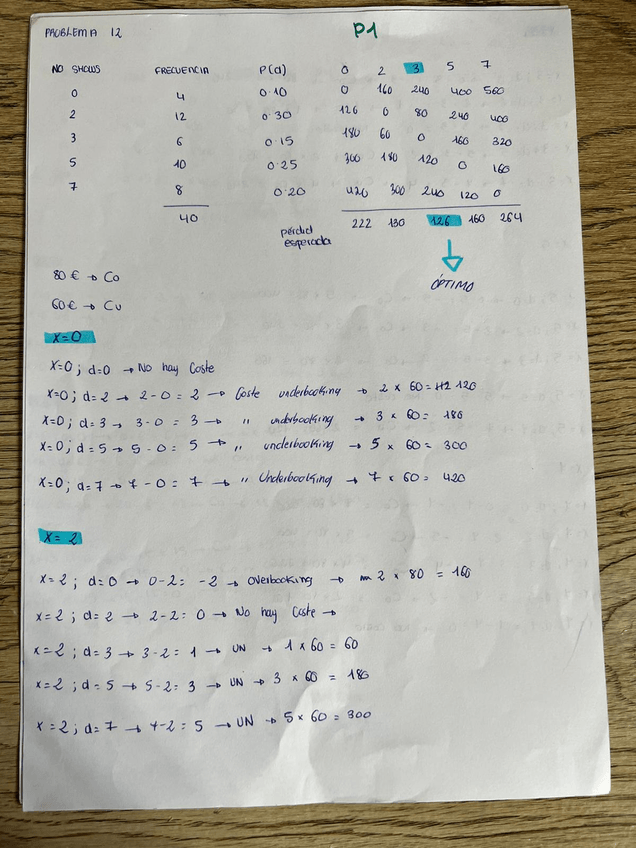 PROBLEMA 12 P1
NO SHOWS FRECUENCIA P(d) 0 2 3 5 7
0 4 0.10 0 160 240 400 560
2 12 0.30 120 0 80 240 400
3 6 0.15 180 60 0 160 320
5 10 0.25 300 180 120 0 160
7 8 0.20 420 300 240 120 0
40 pérdid esperada 222 130 126 160 264
ÓPTIMO
80 € → Co
60 € → Cu
x=0
x=0; d=0 → No hay Coste
x=0; d=2 → 2-0 = 2 → Coste underbooking → 2 x 60 = 120
x=0; d=3 → 3-0 = 3 → " underbooking → 3 x 60 = 180
x=0; d=5 → 5-0 = 5 → " underbooking → 5 x 60 = 300
x=0; d=7 → 7-0 = 7 → " Underbooking → 7 x 60 = 420
x= 2
x=2; d=0 → 0-2= -2 → overbooking → 2 x 80 = 160
x=2; d=2 → 2-2= 0 → No hay Coste →
x=2; d=3 → 3-2= 1 → UN → 1 x 60 = 60
x=2; d=5 → 5-2= 3 → UN → 3 x 60 = 180
x=2; d=7 → 7-2= 5 → UN → 5 x 60 = 300